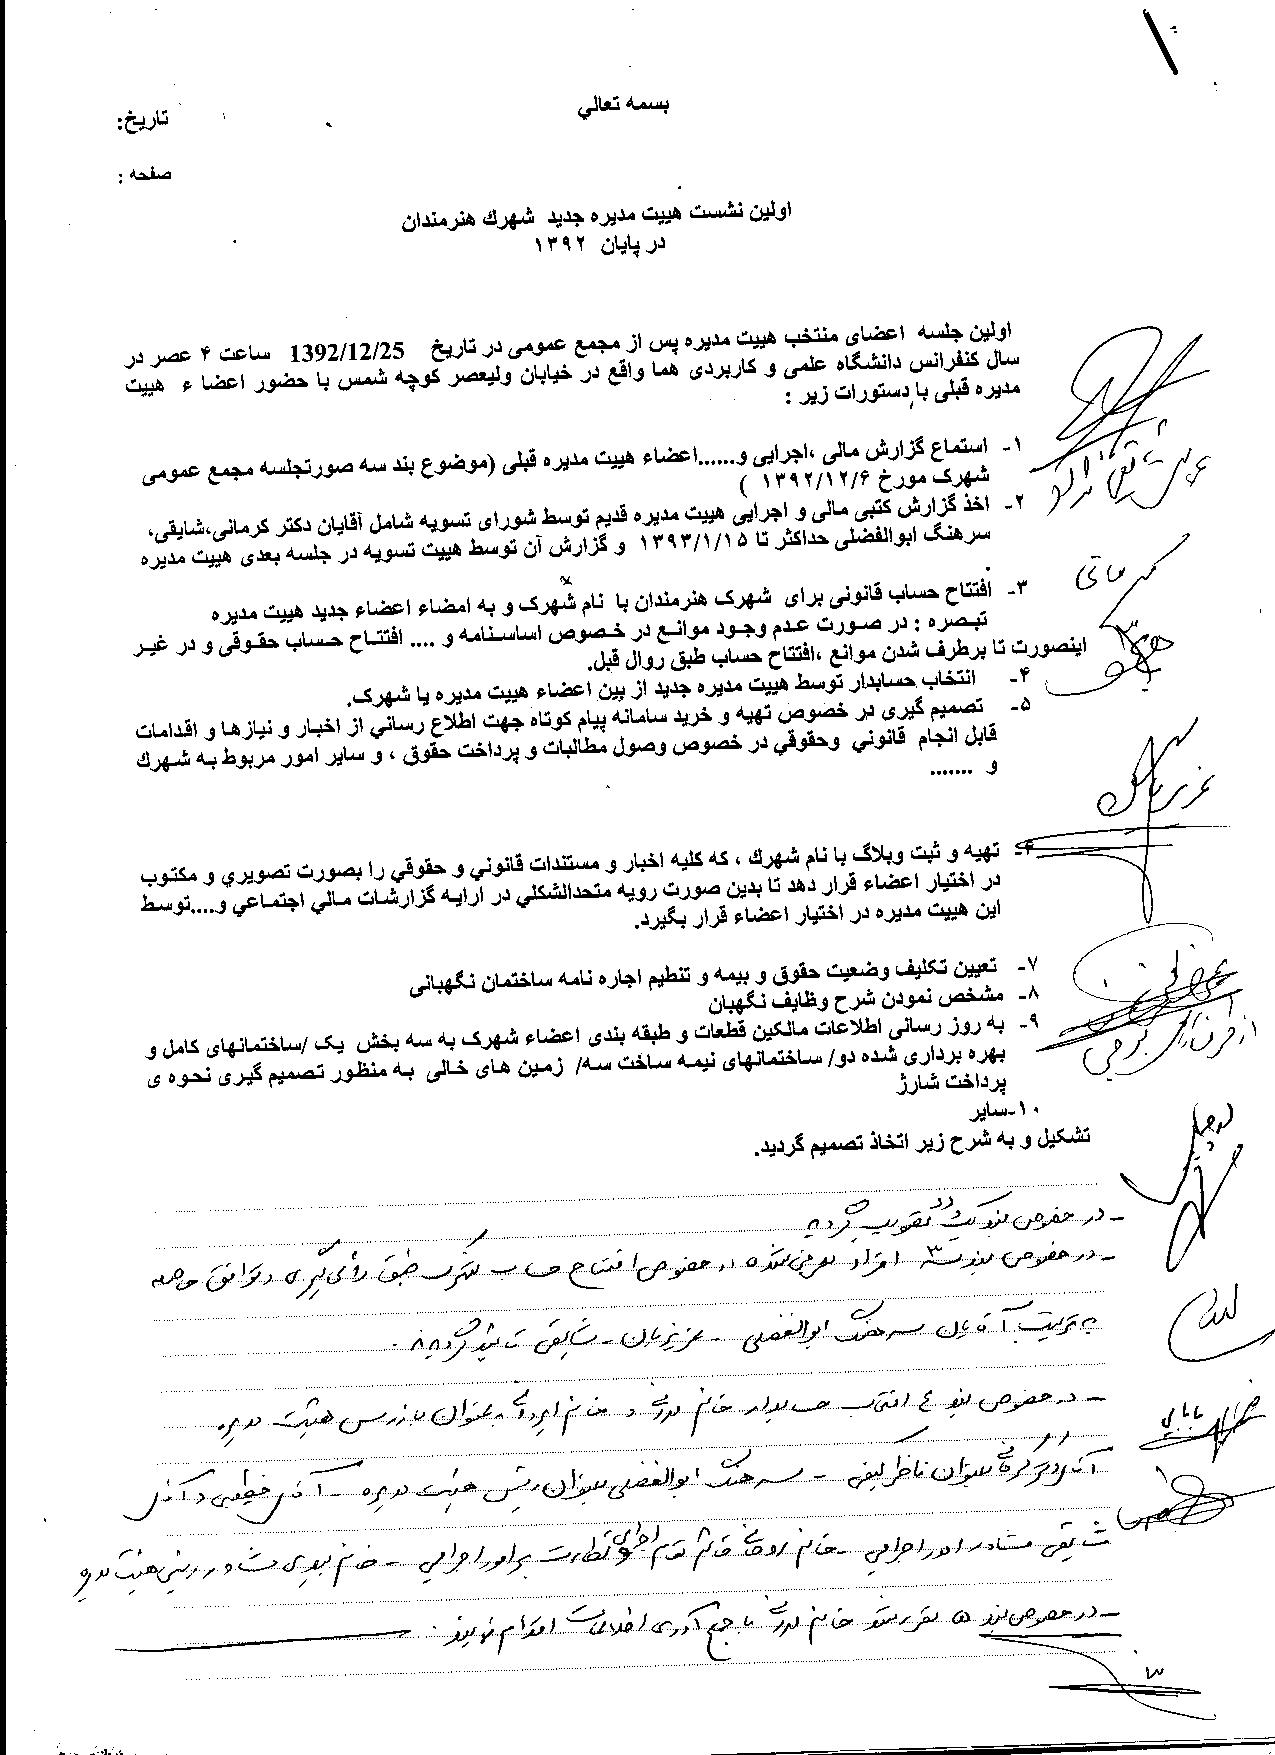 بسمه تعالي
تاريخ:
صفحه :
اولين نشست هييت مديره جديد شهرك هنرمندان
در پايان ۱۳۹۲
اولين جلسه اعضای منتخب هييت مديره پس از مجمع عمومی در تاريخ 1392/12/25 ساعت ۴ عصر در
سال كنفرانس دانشگاه علمی و كاربردی هما واقع در خيابان وليعصر كوچه شمس با حضور اعضا ء هييت
مديره قبلی با دستورات زير :
۱- استماع گزارش مالی ،اجرايی و......اعضاء هييت مديره قبلی (موضوع بند سه صورتجلسه مجمع عمومی
شهرک مورخ ۱۳۹۲/۱۲/۶ )
۲- اخذ گزارش كتبی مالی و اجرايی هييت مديره قديم توسط شورای تسويه شامل آقايان دكتر كرمانی،شايقی،
سرهنگ ابوالفضلی حداكثر تا ۱۳۹۳/۱/۱۵ و گزارش آن توسط هييت تسويه در جلسه بعدی هييت مديره
۳- افتتاح حساب قانونی برای شهرک هنرمندان با نام شهرک و به امضاء اعضاء جديد هييت مديره
تبصره : در صورت عدم وجود موانع در خصوص اساسنامه و .... افتتاح حساب حقوقی و در غير
اينصورت تا برطرف شدن موانع ،افتتاح حساب طبق روال قبل.
۴- انتخاب حسابدار توسط هييت مديره جديد از بين اعضاء هييت مديره يا شهرک.
۵- تصميم گيری در خصوص تهيه و خريد سامانه پيام كوتاه جهت اطلاع رساني از اخبار و نيازها و اقدامات
قابل انجام قانوني وحقوقي در خصوص وصول مطالبات و پرداخت حقوق ، و ساير امور مربوط به شهرك
و .......
۶- تهيه و ثبت وبلاگ با نام شهرك ، كه كليه اخبار و مستندات قانوني و حقوقي را بصورت تصويري و مكتوب
در اختيار اعضاء قرار دهد تا بدين صورت رويه متحدالشكلي در ارايه گزارشات مالي اجتماعي و....توسط
اين هييت مديره در اختيار اعضاء قرار بگيرد.
۷- تعيين تكليف وضعيت حقوق و بيمه و تنظيم اجاره نامه ساختمان نگهبانی
۸- مشخص نمودن شرح وظايف نگهبان
۹- به روز رسانی اطلاعات مالكين قطعات و طبقه بندی اعضاء شهرک به سه بخش يک /ساختمانهای كامل و
بهره برداری شده دو/ ساختمانهای نيمه ساخت سه/ زمين های خالی به منظور تصميم گيری نحوه ی
پرداخت شارژ
۱۰-ساير
تشكيل و به شرح زير اتخاذ تصميم گرديد.
- در خصوص بند یک و دو تصویب گردید
- در خصوص بند ۳ افراد معرفی شده در خصوص افتتاح حساب مشترک طبق رأی گیری و توافق حاصله
به ترتیب آقایان سرهنگ ابوالفضلی - عزیزیان - شایقی تائید گردید.
- در خصوص بند ۴ انتخاب حسابدار خانم و خانم بعنوان بازرس هیئت مدیره
آقای دکتر کرمانی بعنوان ناظر کیفی - سرهنگ ابوالفضلی بعنوان رئیس هیئت مدیره - آقای و آقای
شایقی مشاور امور اجرایی - خانم قائم مقام اجرائی نظارت بر امور اجرایی - خانم مشاور رئیس هیئت مدیره
- در خصوص بند ۵ مقرر شد خانم با جمع آوری اطلاعات اقدام نمایند.
کرمانی